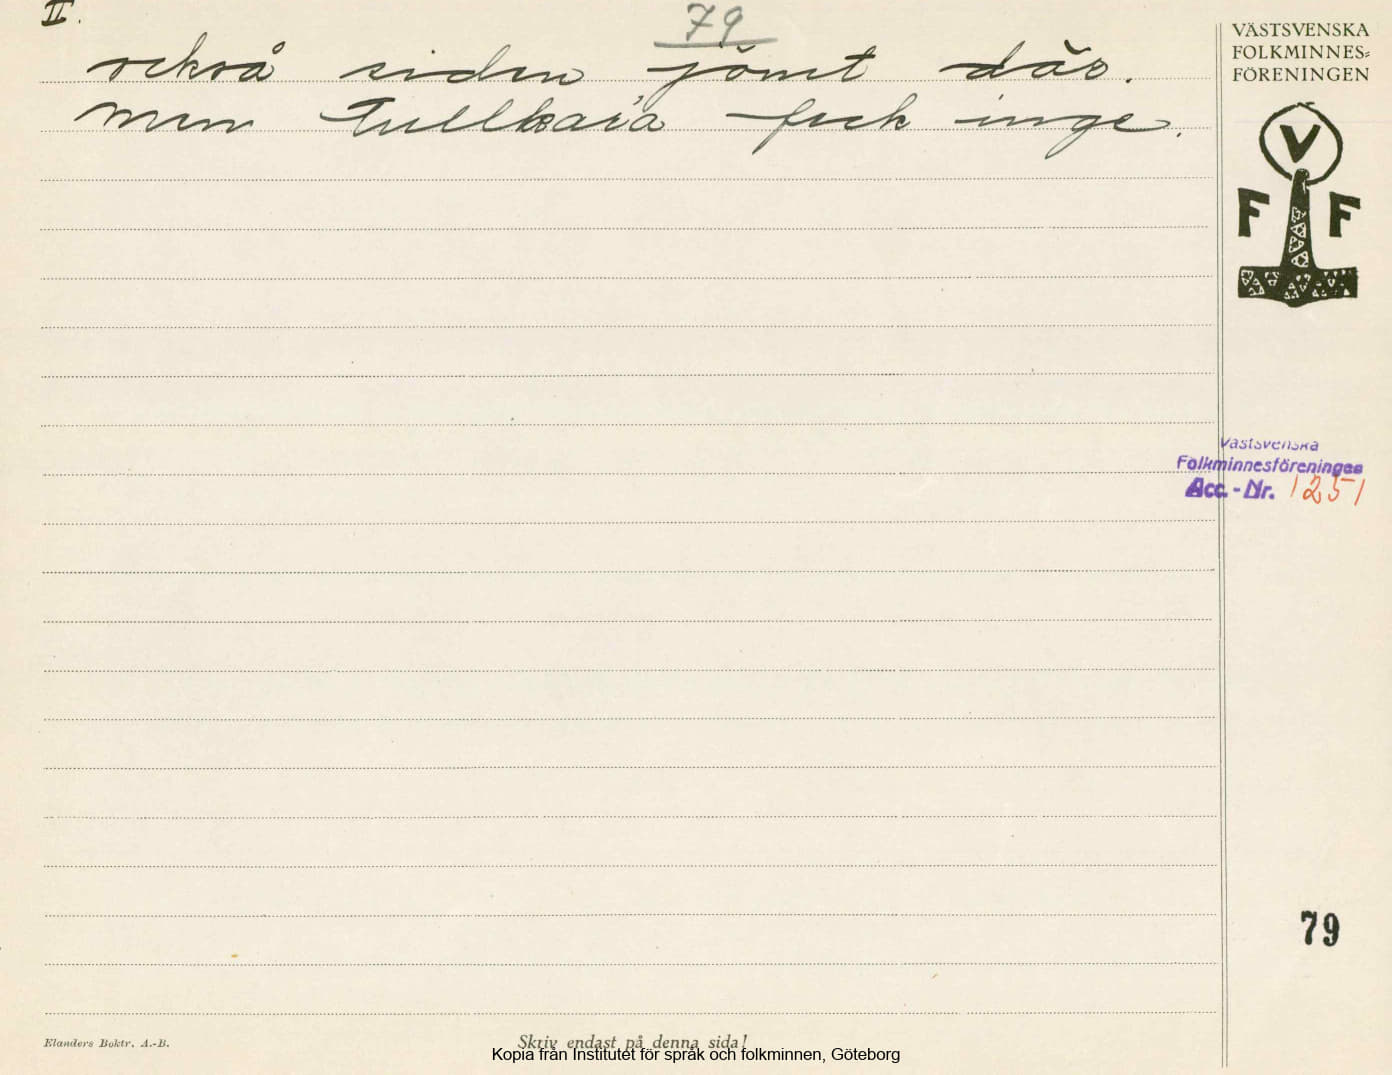 II.
79
också siden jömt där.
men Gullkaia fick inge.
VÄSTSVENSKA
FOLKMINNES-
FÖRENINGEN
V
F F
Västsvenska
Folkminnesföreninges
Acc. - Nr. 1251
79
Elanders Boktr. A.-B.
Skriv endast på denna sida!
Kopia från Institutet för språk och folkminnen, Göteborg